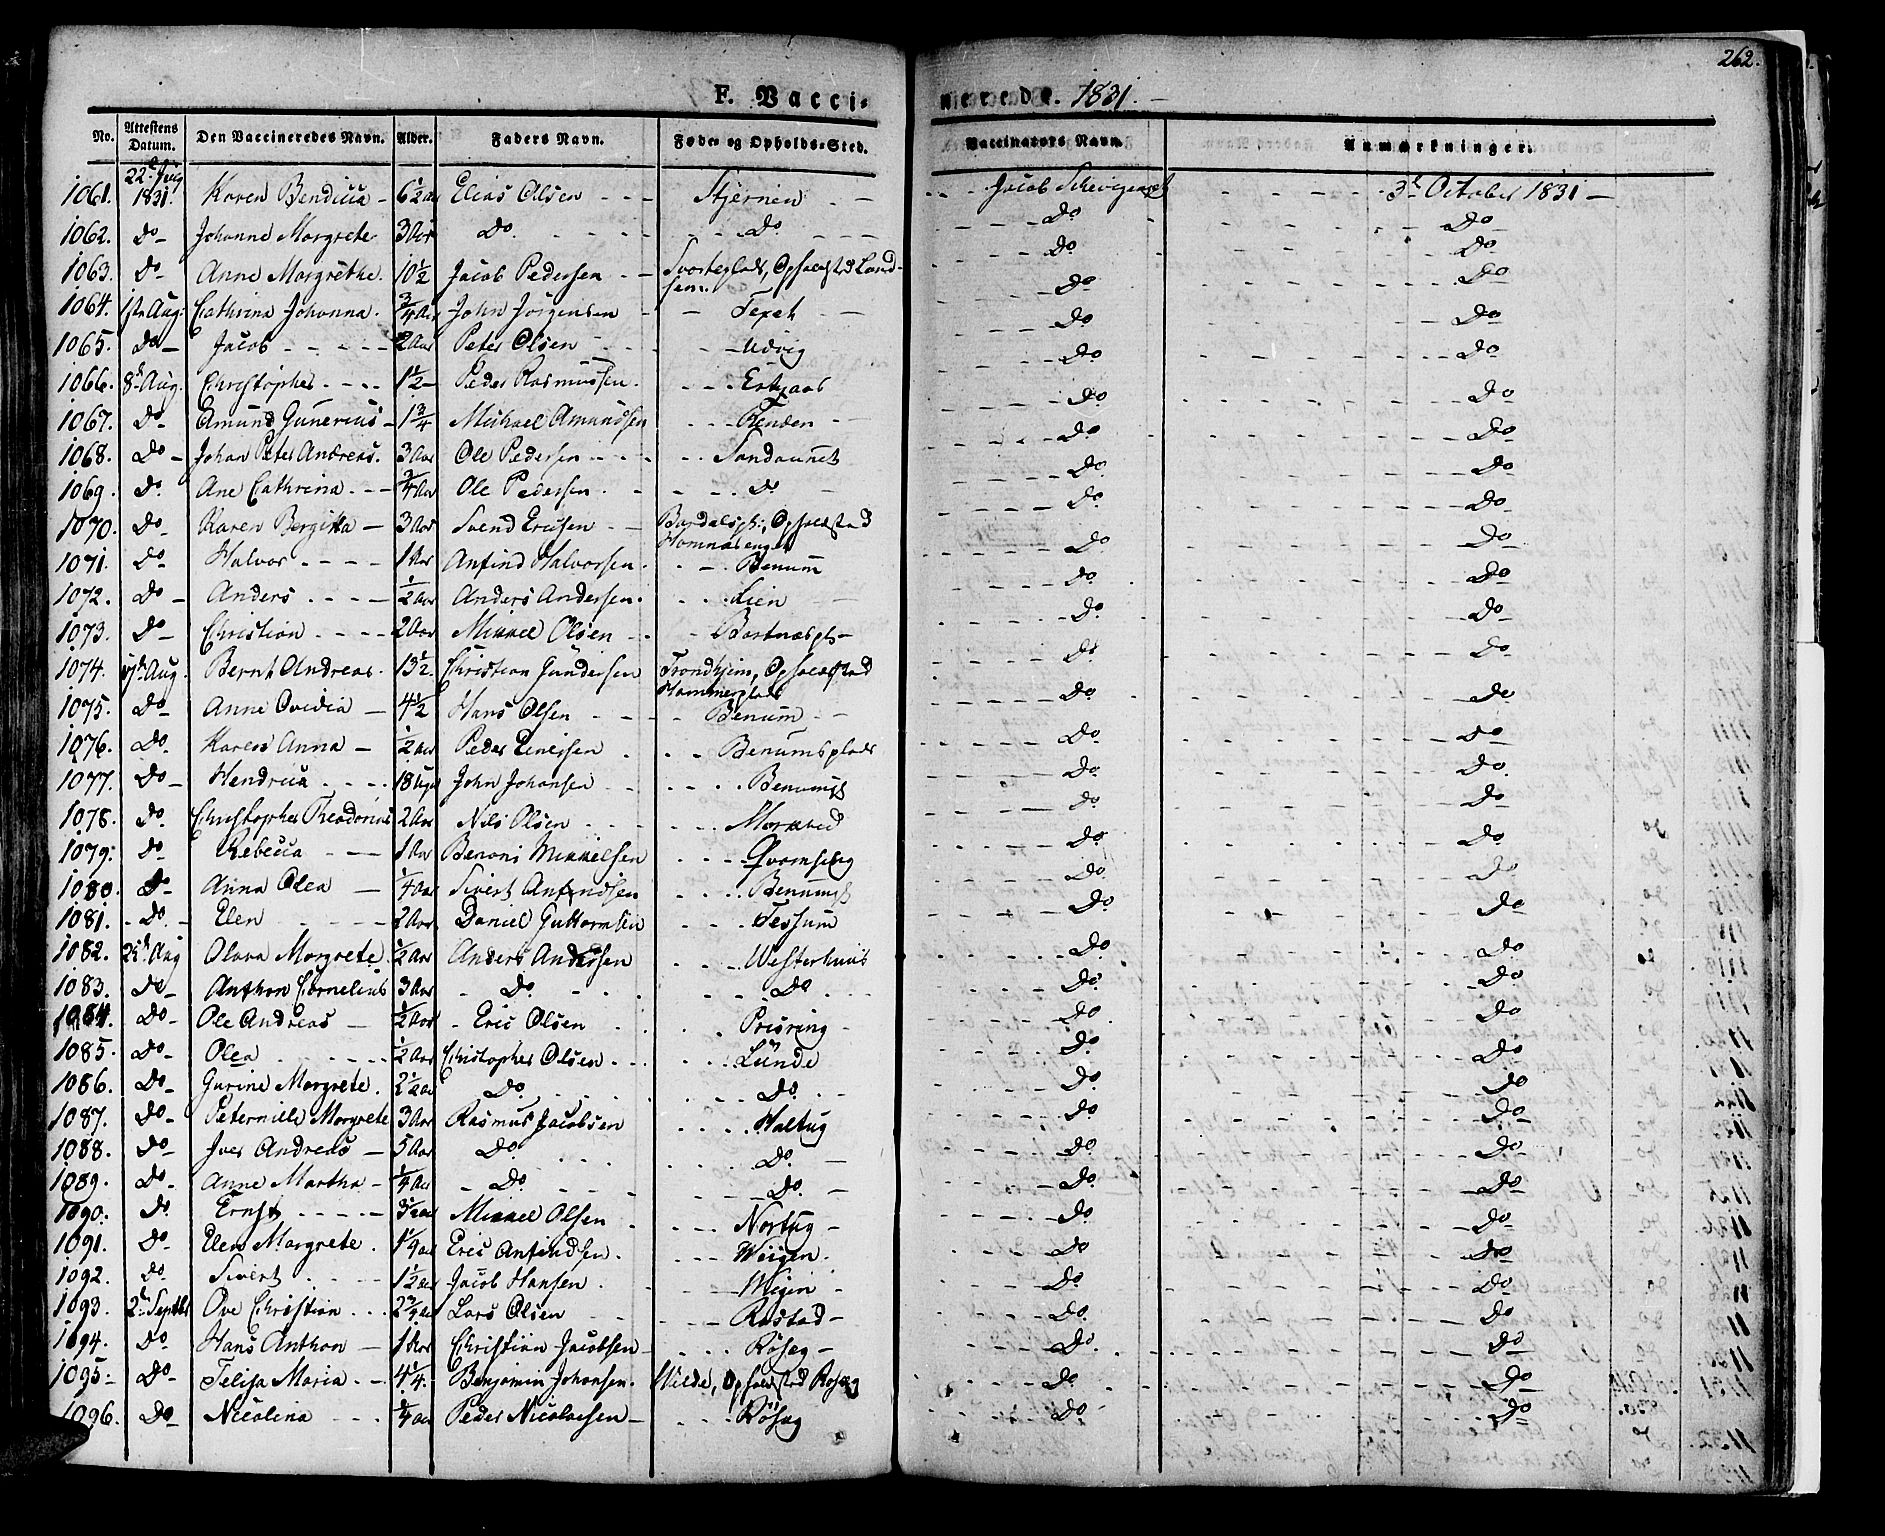 262.
F. Vacci-nerede. 1831.
No. Attestens Datum. Den Vaccineredes Navn. Alder. Faders Navn. Føde- og Opholds-Sted. Vaccinators Navn. Anmærkninger.
1061. 22de July 1831. Karen Bendicta 6½ aar Elias Olsen Stjernen Jacob 3de October 1831
1062. Do Johanne Margrete 3 Aar Do. Do. Do Do
1063. Do Anne Margrethe 10½ Jacob Pedersen Opholdsted Do Do
1064. 1ste Aug: Cathrina Johanna ¾ Aar John Jørgensen Do Do
1065. Do Jacob 2 Aar Peter Olsen Udvig Do Do
1066. 8de Aug. Christopher 1½ Peder Rasmussen Do Do
1067. Do Amund Gunerius 1¾ Michael Amundsen Do Do
1068. Do Johan Peter Andreas. 3 Aar Ole Pedersen Sandaunet Do Do
1069. Do Ane Cathrina ¾ Aar Ole Pedersen Do Do Do
1070. Do Karen Bergitta 3 Aar Svend Ericsen Opholdsted Do Do
1071. Do Halvor 1 Aar Anfind Halvorsen. Benum Do Do
1072. Do Anders ½ Aar Anders Andersen. Lien Do Do
1073. Do Christian 2 Aar Mikkel Olsen Do Do
1074. 17de Aug. Bernt Andreas 13½ Christian Gundersen Trondhjem, Opholdsted Hammerplads Do Do
1075. Do Anne Ovidia 4½ Hans Olsen Benum Do Do
1076. Do Karen Anna ½ aar Peder Benumsplads Do Do
1077. Do Hendrica 18 Uger John Johansen Do Do
1078. Do Christopher Theodorius 2 Aar Nils Olsen Markved Do Do
1079. Do Rebecca 1 Aar Benoni Mikkelsen Do Do
1080. Do Anna Olea ¼ Aar Sivert Anfindsen Do Do
1081. Do Elen 2 Aar Daniel Guttormsen Tessum Do Do
1082. Aug Olava Margrete ½ Aar Anders Andersen Westerhuus Do Do
1083. Do Anthon Cornelius 3 Aar Do. Do. Do Do
1084. Do Ole Andreas ½ Aar Eric Olsen Do Do
1085. Do Olea ½ Aar Christopher Olsen Lunde Do Do
1086. Do Gurine Margrete 2½ aar Do Do. Do Do
1087. Do Peternille Margrete 3 Aar Rasmus Jacobsen Haltug Do Do
1088. Do Iver Andreas 5 Aar Do Do. Do Do
1089. Do Anne Martha ¼ Aar Do Do. Do Do
1090. Do Ernst Mikkel Olsen Nortug Do Do
1091. Do Elen Margrete Eric Anfindsen. Wiigen Do Do
1092. Do Sivert 1½ aar Jacob Hansen Wigen Do Do
1093. 2de Septbr Ove Christian 2¾ aar Lars Olsen Rostad Do Do
1094. Do Hans Anthon 1 Aar Christian Jacobsen Røseg Do Do
1095. Do Felisa Maria 4¼ Benjamin Johansen. Wilde, Opholdsted Røseg Do Do
1096. Do Nicolina ¾ aar Peder Nicolaisen Røseg Do Do